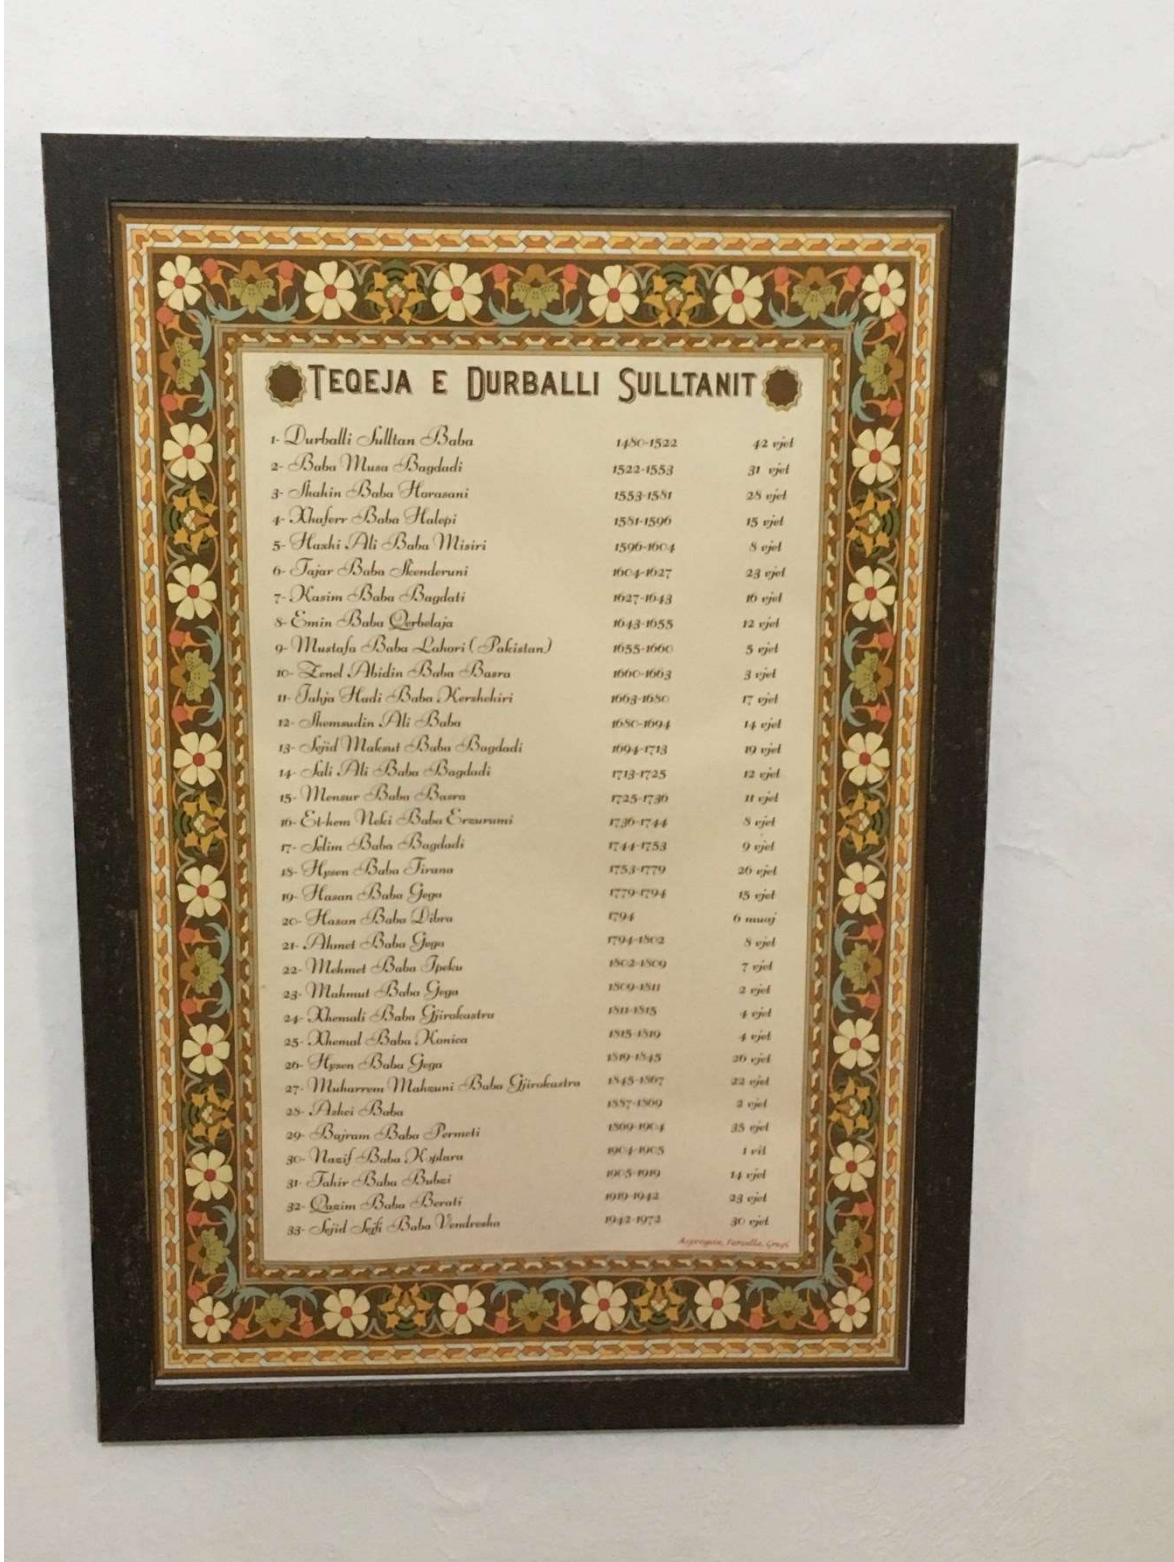 TEQEJA E DURBALLI SULLTANIT
1- Durballi Sulltan Baba 1480-1522 42 vjet
2- Baba Musa Bagdadi 1522-1553 31 vjet
3- Shahin Baba Horasani 1553-1581 28 vjet
4- Xhaferr Baba Halepi 1581-1596 15 vjet
5- Haxhi Ali Baba Misiri 1596-1604 8 vjet
6- Tajar Baba Skenderuni 1604-1627 23 vjet
7- Kasim Baba Bagdati 1627-1643 16 vjet
8- Emin Baba Qerbelaja 1643-1655 12 vjet
9- Mustafa Baba Lahori (Pakistan) 1655-1660 5 vjet
10- Zenel Abidin Baba Basra 1660-1663 3 vjet
11- Jahja Hadi Baba Kershehiri 1663-1680 17 vjet
12- Shemsudin Ali Baba 1680-1694 14 vjet
13- Sejid Maksut Baba Bagdadi 1694-1713 19 vjet
14- Sali Ali Baba Bagdadi 1713-1725 12 vjet
15- Mensur Baba Basra 1725-1736 11 vjet
16- Et-hem Neki Baba Erzurumi 1736-1744 8 vjet
17- Selim Baba Bagdadi 1744-1753 9 vjet
18- Hysen Baba Tirana 1753-1779 26 vjet
19- Hasan Baba Gega 1779-1794 15 vjet
20- Hasan Baba Dibra 1794 6 muaj
21- Ahmet Baba Gega 1794-1802 8 vjet
22- Mehmet Baba Ipeku 1802-1809 7 vjet
23- Mahmut Baba Gega 1809-1811 2 vjet
24- Xhemali Baba Gjirokastra 1811-1815 4 vjet
25- Xhemal Baba Konica 1815-1819 4 vjet
26- Hysen Baba Gega 1819-1845 26 vjet
27- Muharrem Mahzuni Baba Gjirokastra 1845-1867 22 vjet
28- Ashci Baba 1887-1869 2 vjet
29- Bajram Baba Permeti 1869-1904 35 vjet
30- Nazif Baba 1904-1905 1 vit
31- Tahir Baba Bubzi 1905-1919 14 vjet
32- Qazim Baba Berati 1919-1942 23 vjet
33- Sejid Sejfi Baba Vendresha 1942-1972 30 vjet